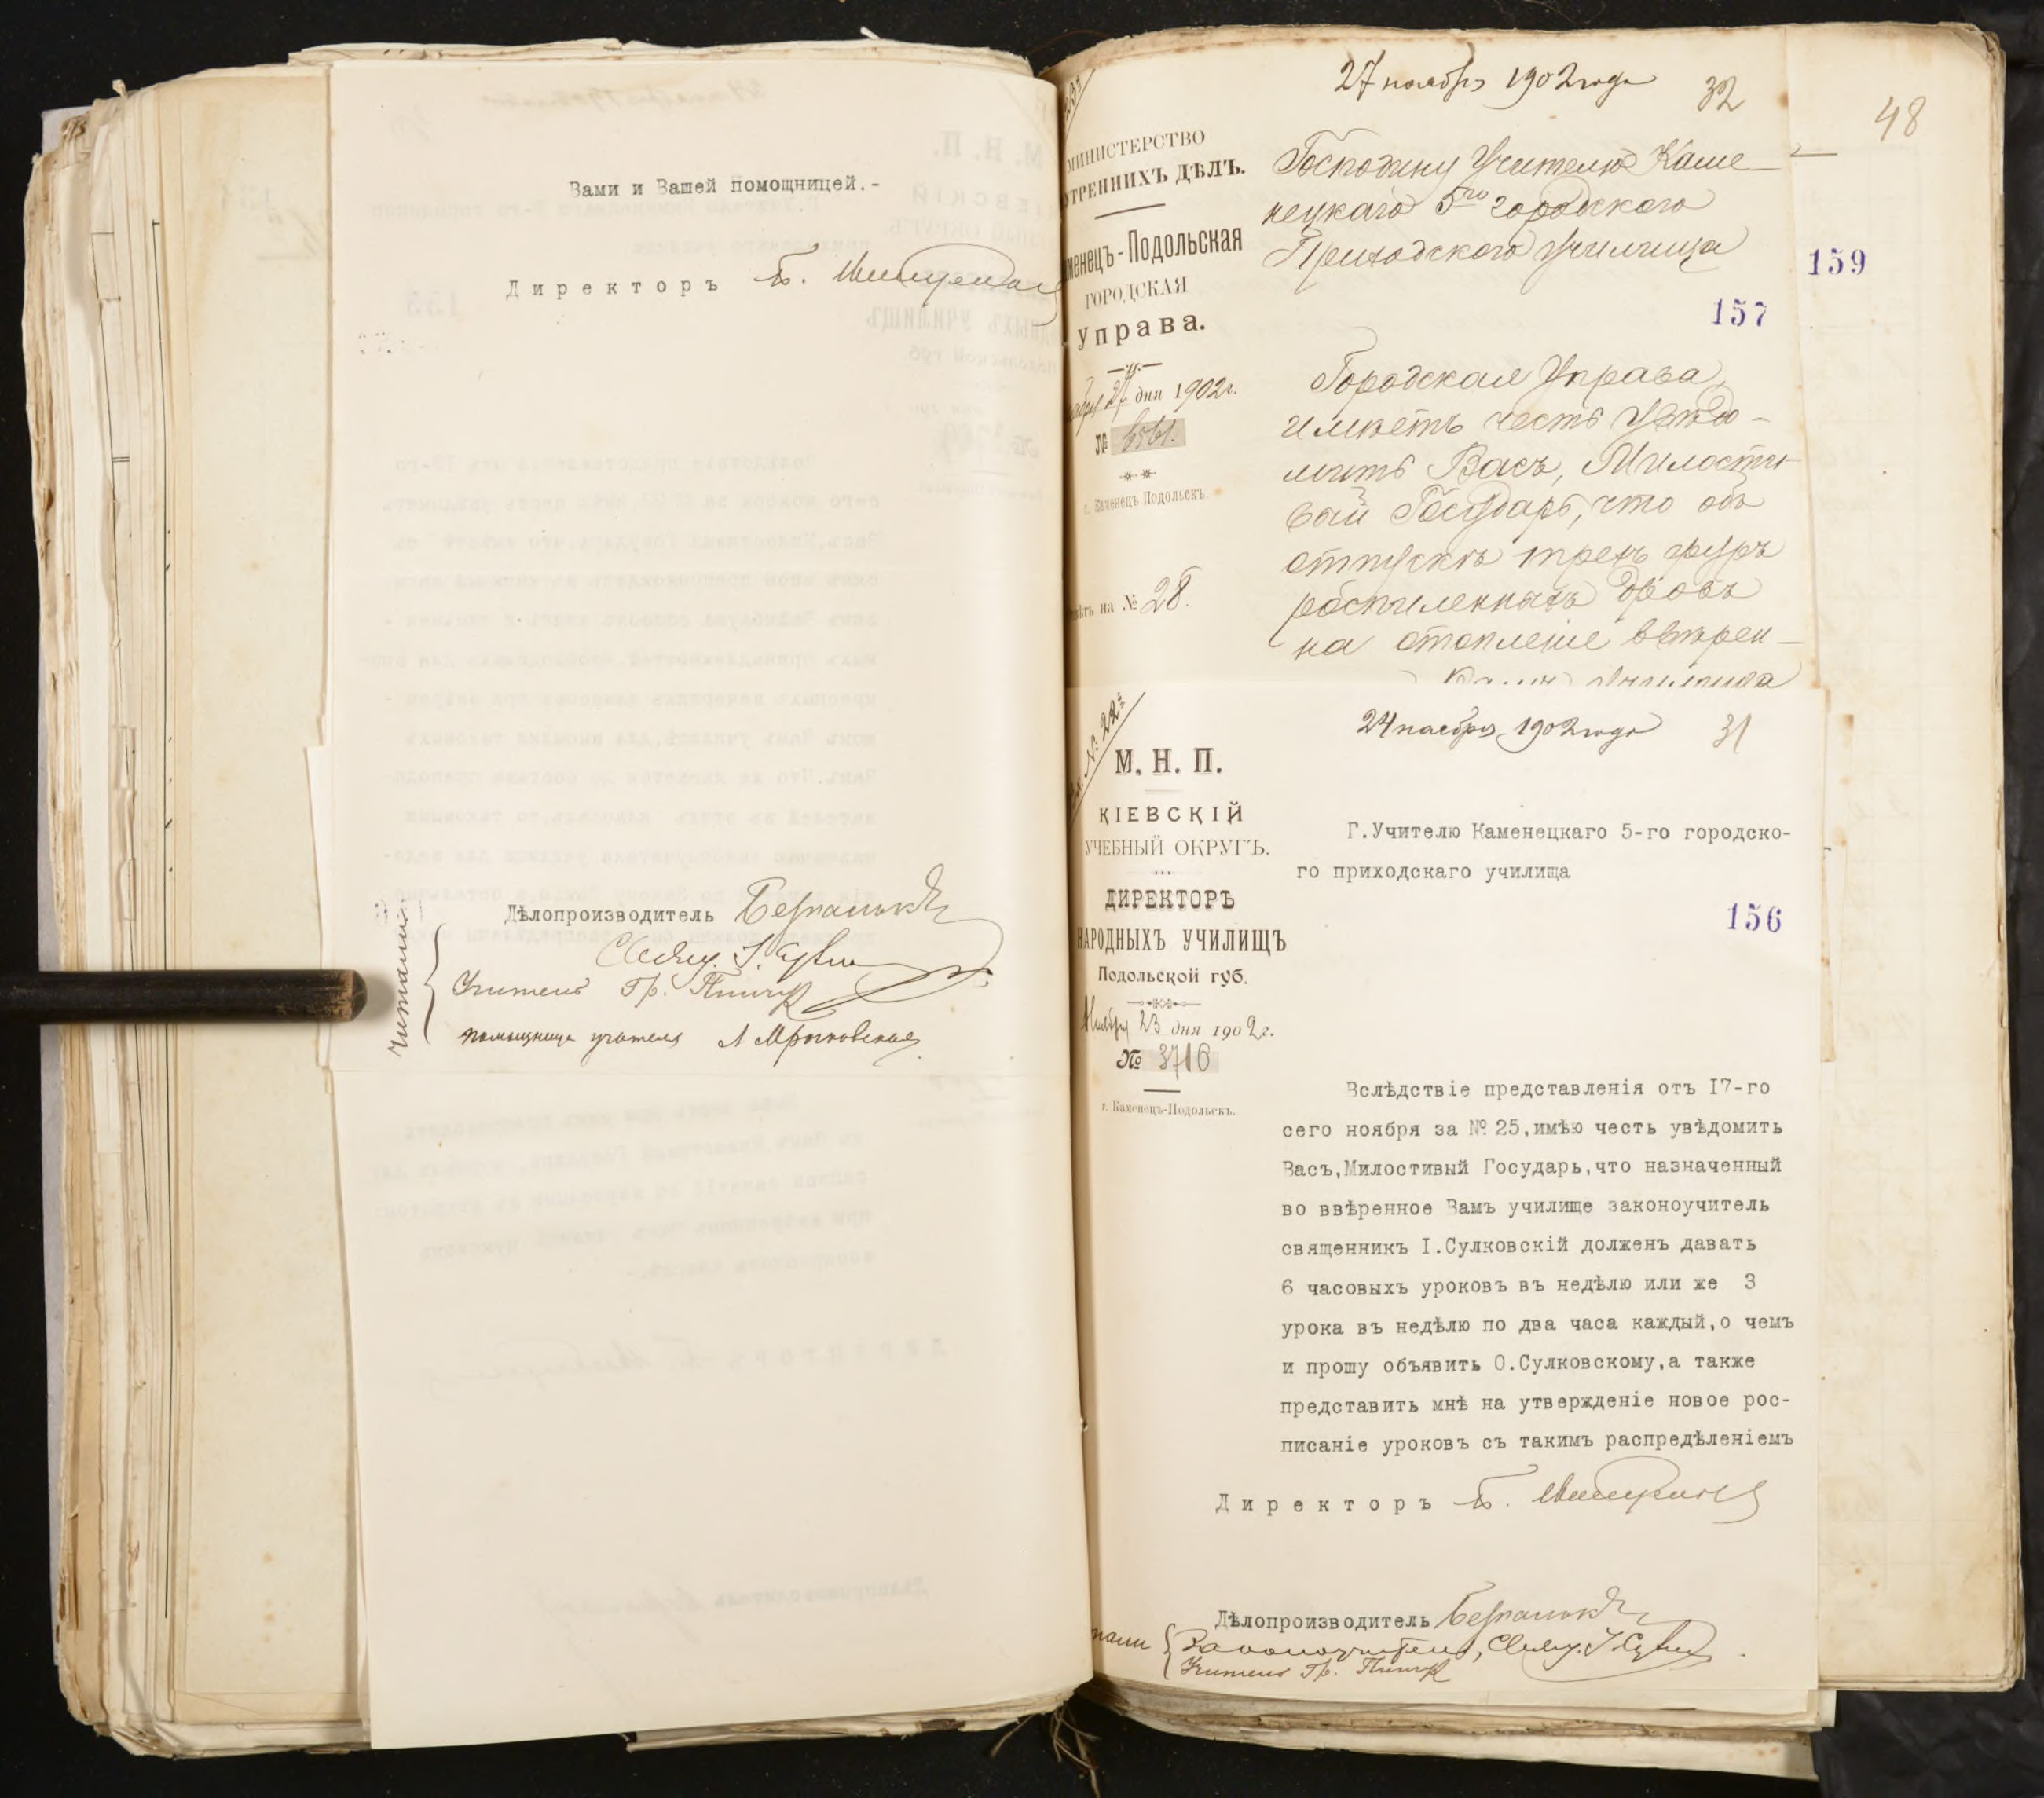 Вами и Вашей помощницей.-
Директоръ
Дѣлопроизводитель
Читали
Учитель Гр.
помощница учителя
27 ноября 1902 года
32
48
МИНИСТЕРСТВО
Каменецъ-Подольская
ГОРОДСКАЯ
Управа.
27 дня 1902 г.
№
г. Каменецъ Подольскъ.
на № 28.
Господину Учителю Каме-
нецкаго 5го городского
Приходского училища
159
157
Городская Управа,
имѣетъ честь увѣдо-
мить Васъ, Милости-
вый Государь, что объ
отпускѣ трехъ фуръ
распиленныхъ дровъ
на отопленіе ввѣрен-
училища
24 ноября 1902 года
31
М. Н. П.
КІЕВСКІЙ
УЧЕБНЫЙ ОКРУГЪ.
ДИРЕКТОРЪ
НАРОДНЫХЪ УЧИЛИЩЪ
Подольской губ.
Ноября 23 дня 1902 г.
№ 3716
г. Каменецъ-Подольскъ.
Г.Учителю Каменецкаго 5-го городско-
го приходскаго училища
156
Вслѣдствіе представленія отъ I7-го
сего ноября за № 25,имѣю честь увѣдомить
Васъ,Милостивый Государь,что назначенный
во ввѣренное Вамъ училище законоучитель
священникъ І.Сулковскій долженъ давать
6 часовыхъ уроковъ въ недѣлю или же 3
урока въ недѣлю по два часа каждый,о чемъ
и прошу объявить О.Сулковскому,а также
представить мнѣ на утвержденіе новое рос-
писаніе уроковъ съ такимъ распредѣленіемъ
Директоръ
Дѣлопроизводитель
Законоучитель, Свящ. І.
Учитель Гр.